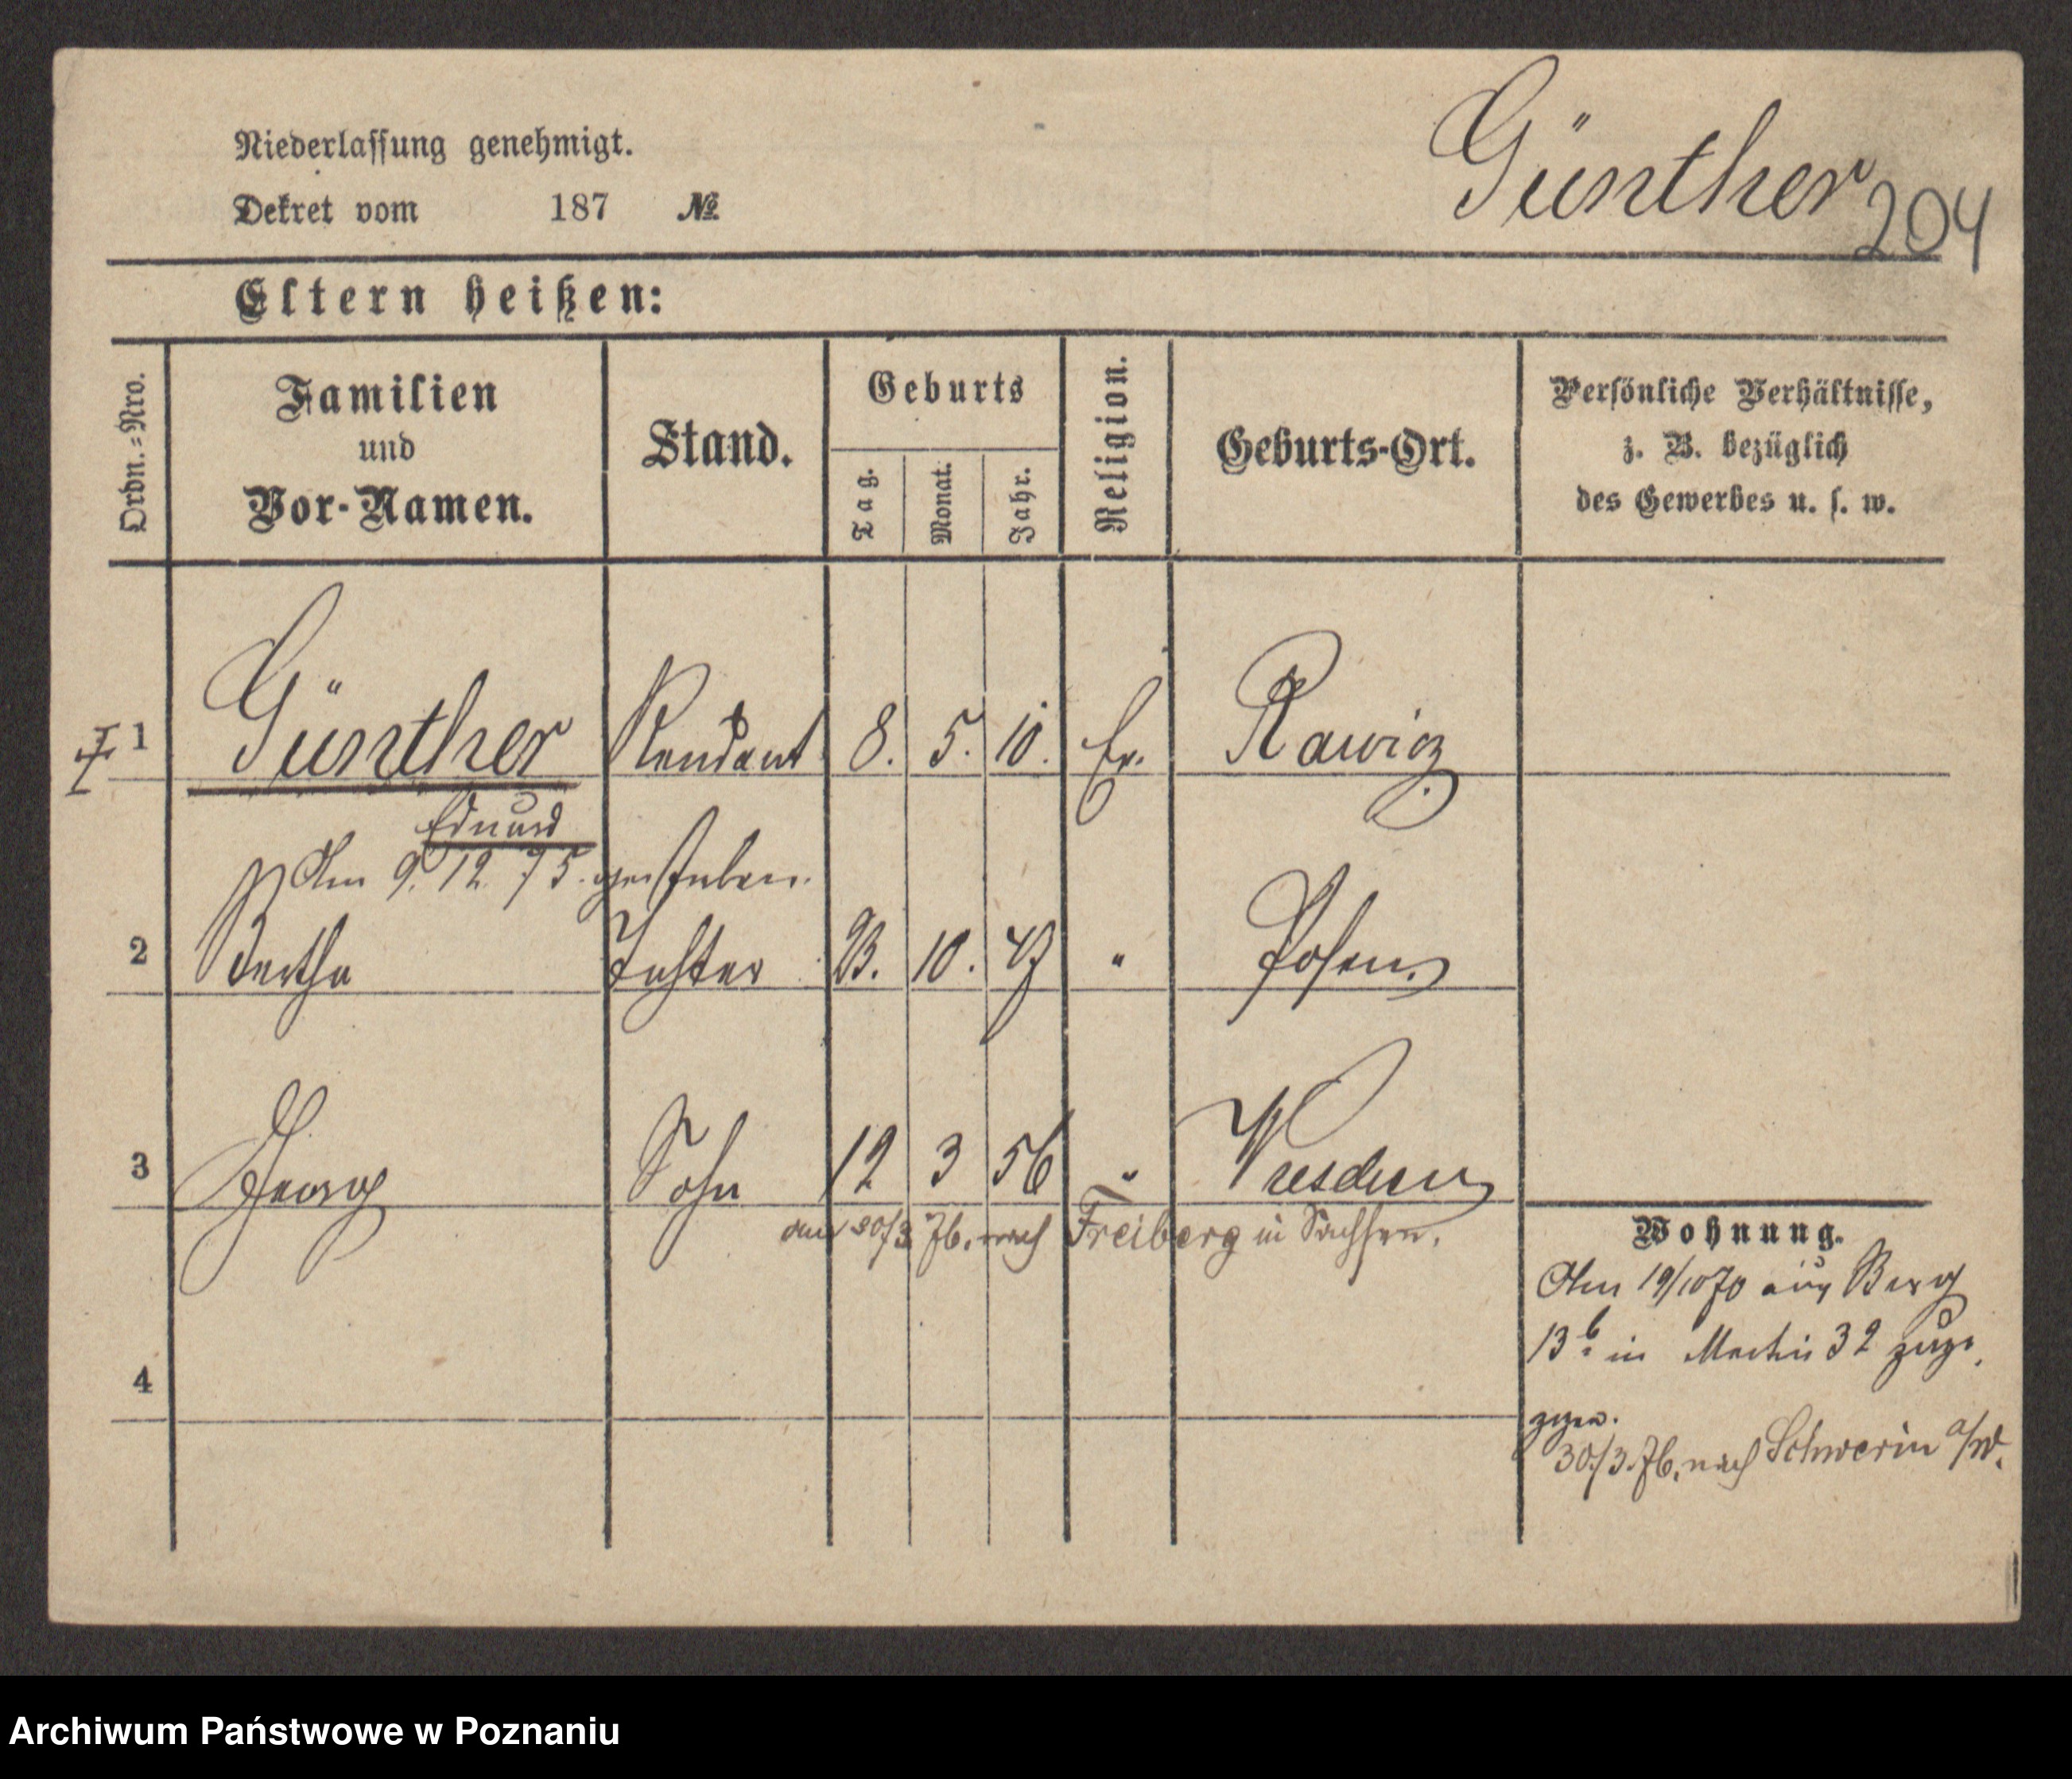 Niederlassung genehmigt.
Dekret vom 187 №
Günther
204
Eltern heißen:
Ordn.-Nro.
Familien
und
Vor-Namen.
Stand.
Geburts
Tag.
Monat.
Jahr.
Religion.
Geburts-Ort.
Persönliche Verhältnisse,
z. B. bezüglich
des Gewerbes u. s. w.
1 Günther Rendant 8. 5. 10. Ev. Rawicz
Eduard
Am 9. 12. 75. gestorben.
2 Bertha Tochter 10. 47 " Posen.
3 Georg Sohn 12 3 56 " Dresden
am 30/3 76. nach Freiberg in Sachsen.
Wohnung.
Am 19/10 70 aus Berg
13 b in Martin 32 zuge.
4
30/3. 76. nach Schwerin a/W.
Archiwum Państwowe w Poznaniu